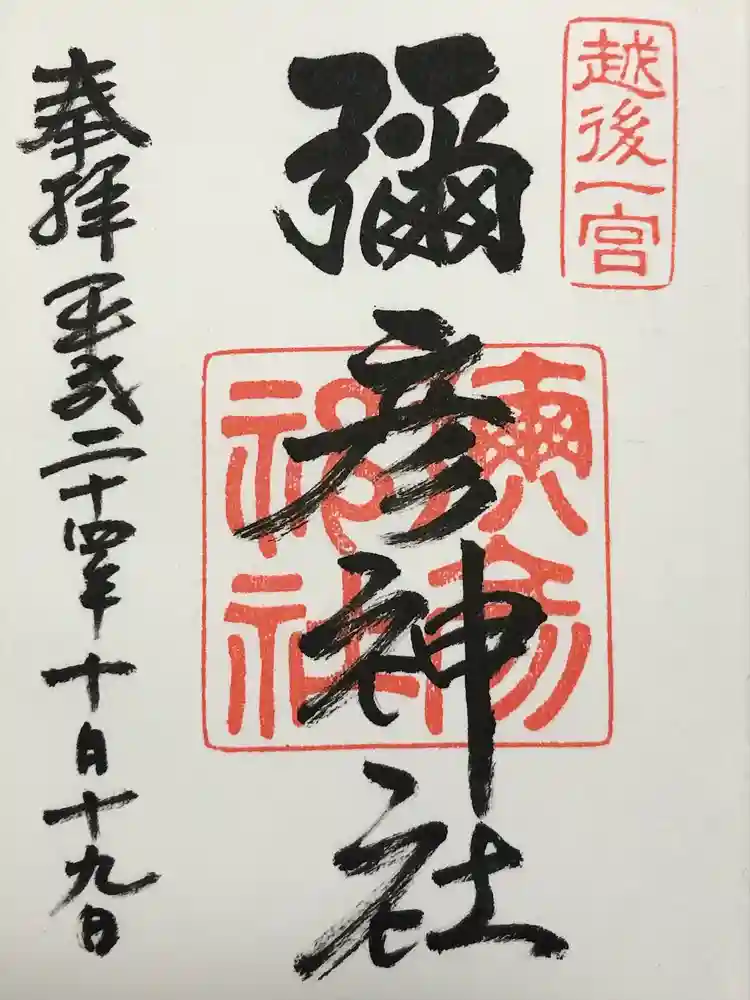 越後一宮
彌彦神社
彌彦
神社
奉拝 平成二十四年 十月十九日